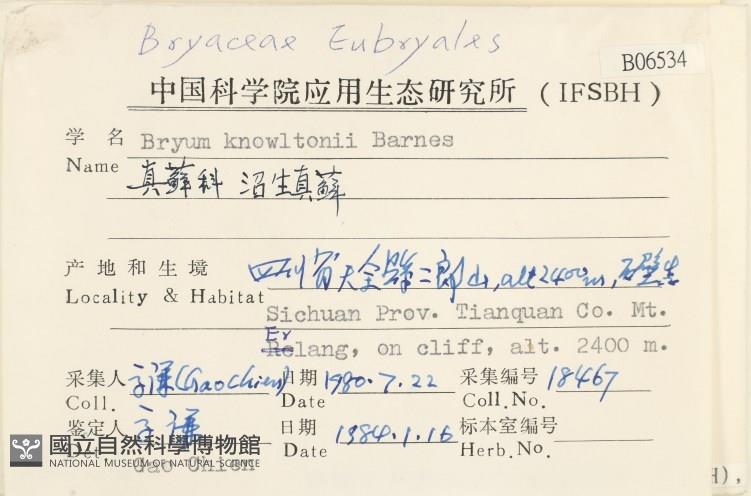 Bryaceae Eubryales
B06534
中国科学院应用生态研究所 (IFSBH)
学名 Bryum knowltonii Barnes
Name 真蘚科 沼生真蘚
产地和生境 四川省天全縣二郎山, alt 2400m, 石壁生
Locality & Habitat
Sichuan Prov. Tianquan Co. Mt.
Er
lang, on cliff, alt. 2400 m.
采集人 高谦(Gao Chien) 日期 1980.7.22 采集编号 18467
Coll. Date Coll.No.
鉴定人 高谦 日期 1984.1.16 标本室编号
Det Gao Chien Date Herb.No.
國立自然科學博物館
NATIONAL MUSEUM OF NATURAL SCIENCE
),